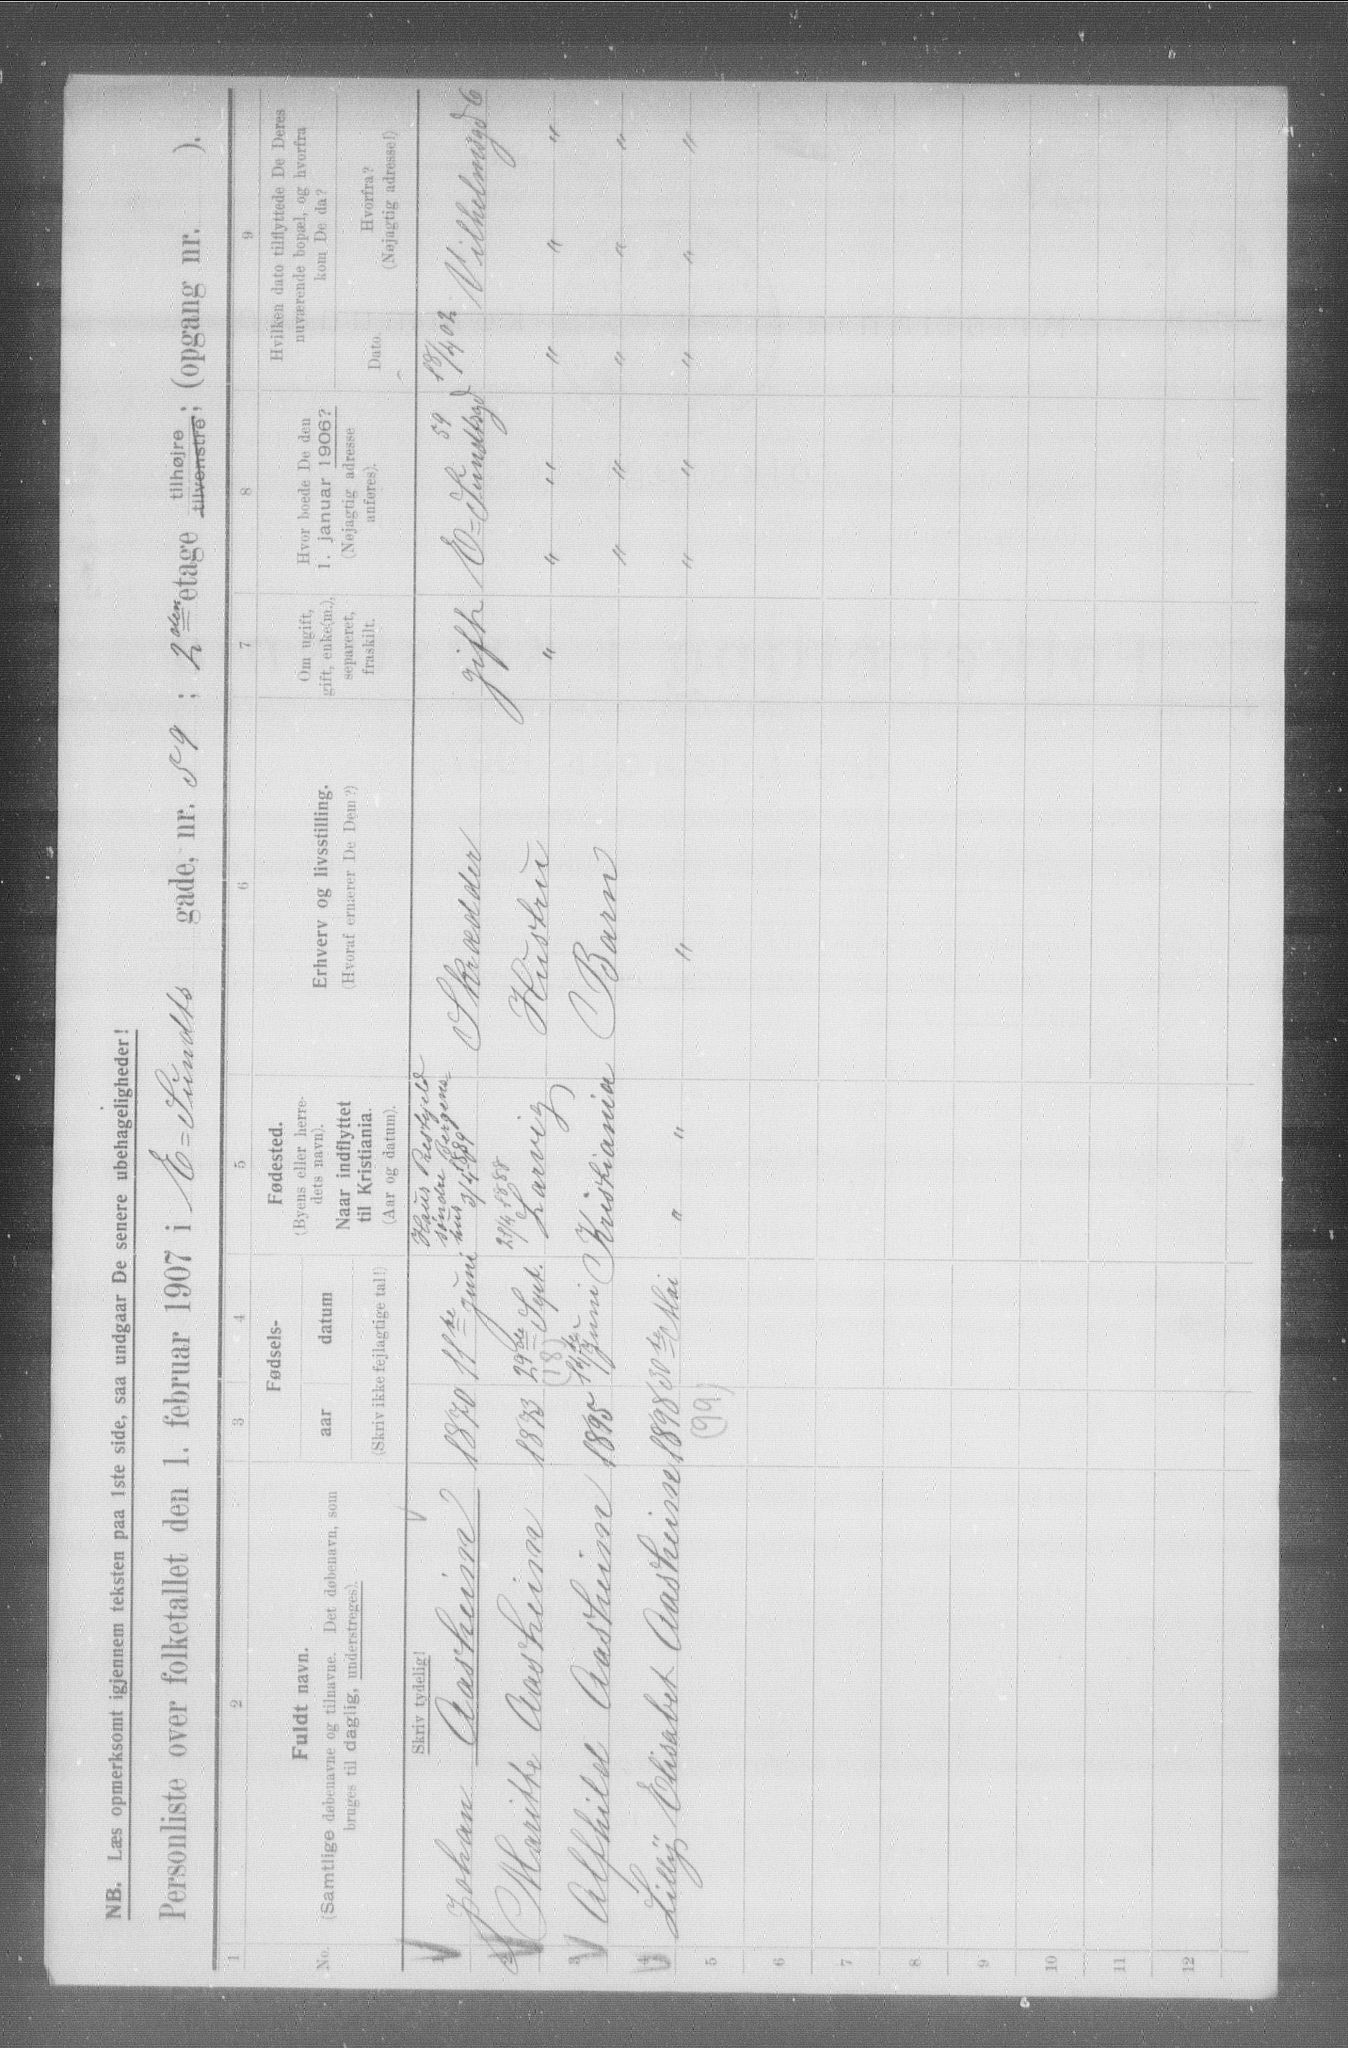 NB. Læs opmerksomt igjennem teksten paa 1ste side, saa undgaar De senere ubehageligheder!
Personliste over folketallet den 1. februar 1907 i E=Sundts gade, nr. 59 ; 2den etage tilhøjre tilvenstre; (opgang nr. ).
1 2 3 4 5 6 7 8 9
No.
Fuldt navn.
(Samtlige døbenavne og tilnavne. Det døbenavn, som
bruges til daglig, understreges).
Fødsels-
aar datum
(Skriv ikke fejlagtige tal!)
Fødested.
(Byens eller herre-
dets navn).
Naar indflyttet
til Kristiania.
(Aar og datum).
Erhverv og livsstilling.
(Hvoraf ernærer De Dem?)
Om ugift,
gift, enke(m.),
separeret,
fraskilt.
Hvor boede De den
1. januar 1906?
(Nøjagtig adresse
anføres).
Hvilken dato tilflyttede De Deres
nuværende bopæl, og hvorfra
kom De da?
Dato.
Hvorfra?
(Nøjagtig adresse!)
Skriv tydelig!
1 Johan Aasheim 1870 11te juni Haus Præstgjeld søndre Bergens hus 3/4 1889 Skrædder gift E=Sundtsgd 59 18/4 02 Vilhelmsgd 6
2 Maritte Aasheim 1873 29de Sept. (18) 21/4 1888 Larvig Hustru " " " " " "
3 Alfhild Aasheim 1895 14de Juni Kristiania Barn " " " " "
4 Lilly Elisabet Aasheim 1898 30te Mai (99) " " " " " " " "
5
6
7
8
9
10
11
12